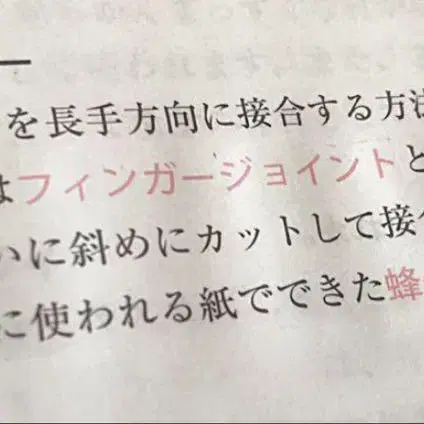 を長手方向に接合する方法
はフィンガージョイントと
いに斜めにカットして接合
に使われる紙でできた蜂